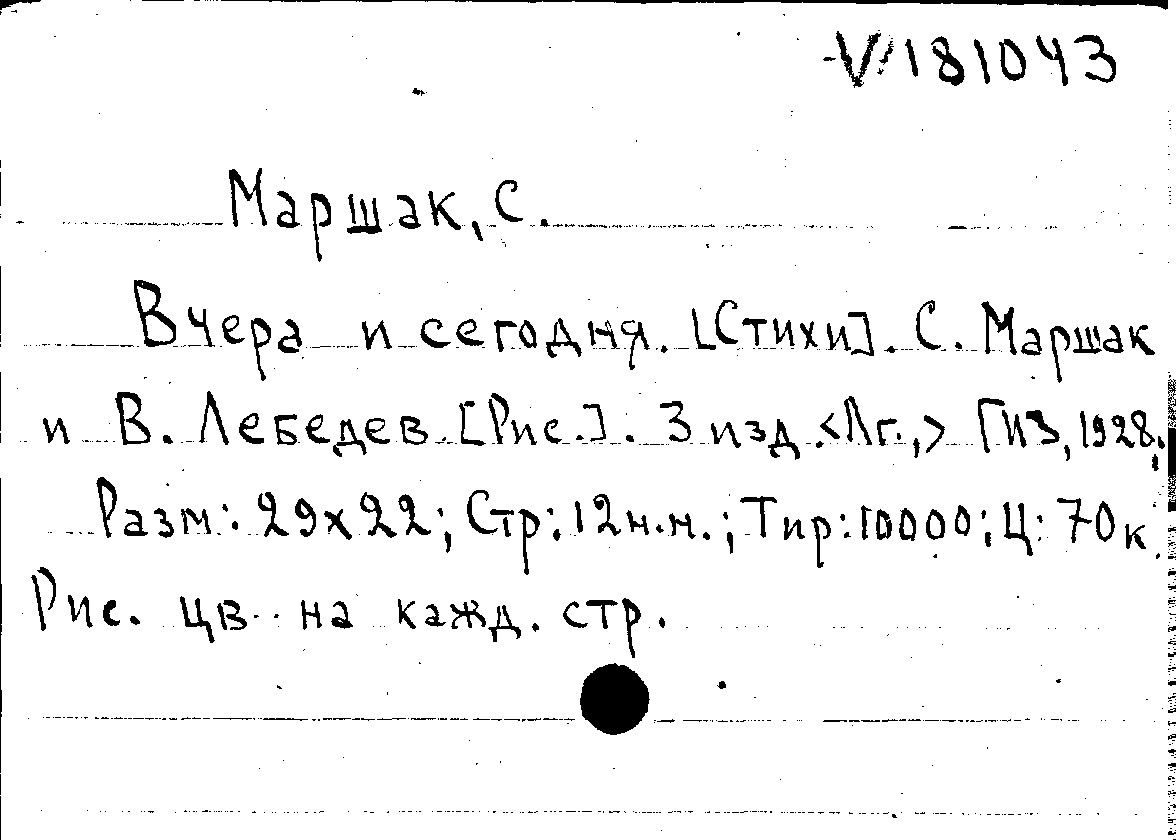 V 181043
Маршак, С.
Вчера и сегодня. [Стихи]. С. Маршак
и В. Лебедев. [Рис.]. 3 изд. <Лг.,> ГИЗ, 1928;
Разм: 29х22; Стр: 12 н.н.; Тир: 10000; Ц: 70к.
Рис. цв. на кажд. стр.